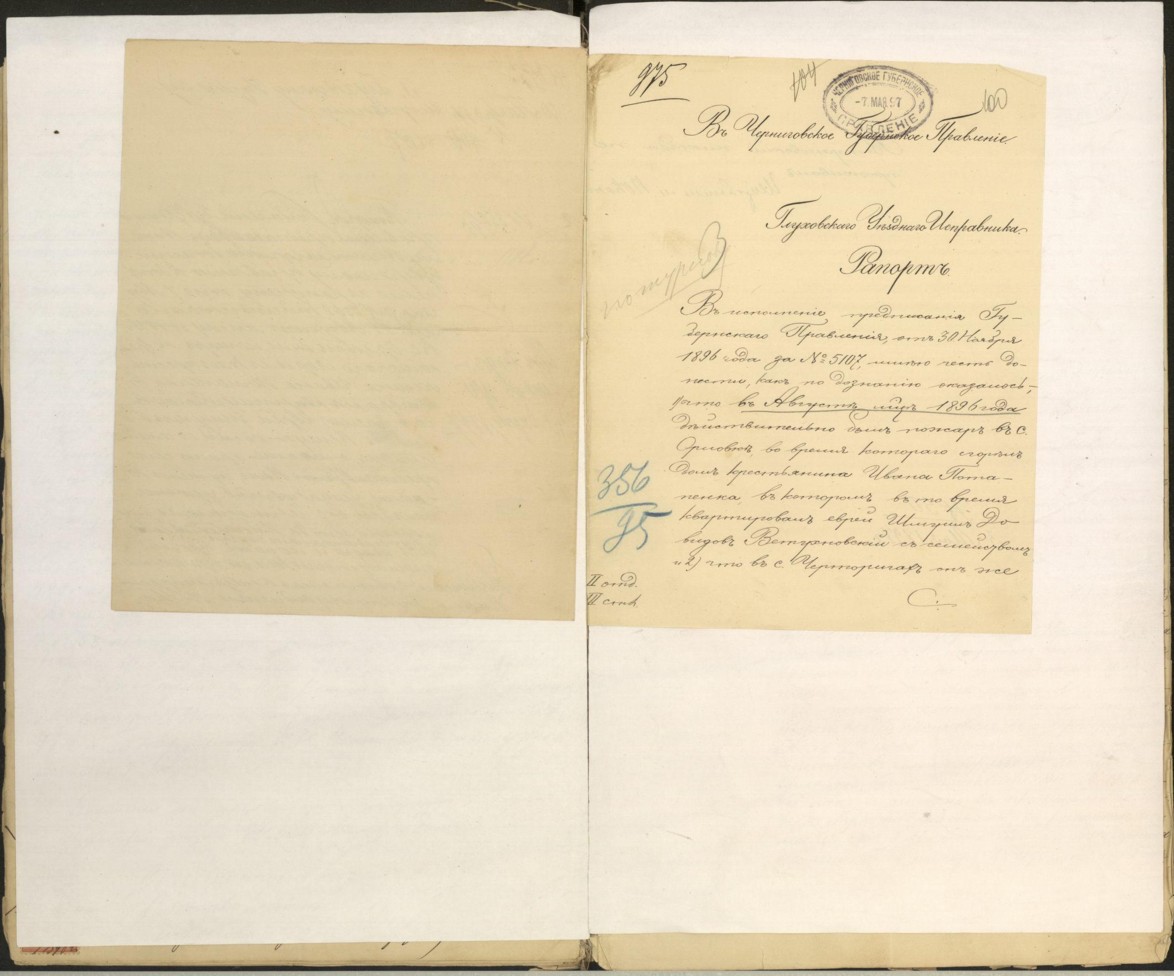 975
104
100
ЧЕРНИГОВСКОЕ ГУБЕРНСКОЕ
-7. МАР. 97
ПРАВЛЕНІЕ
Въ Черниговское Губернское Правленіе.
Глуховскаго Уѣзднаго Исправника.
Рапортъ.
Въ исполненіе предписанія Гу-
бернскаго Правленія, отъ 30 Ноября
1896 года за № 5107, имѣю честь до-
нести, какъ по дознанію оказалось,
что въ Августѣ 1896 года
дѣйствительно былъ пожаръ въ с.
Орловкѣ во время котораго сгорѣлъ
домъ крестьянина Ивана Пота-
пенка въ которомъ въ то время
квартировалъ еврей Шмуилъ До
видовъ Ветухновскій съ семействомъ
и 2) что въ с. Черторигахъ онъ же
С.
356
95
II отд.
III стл.